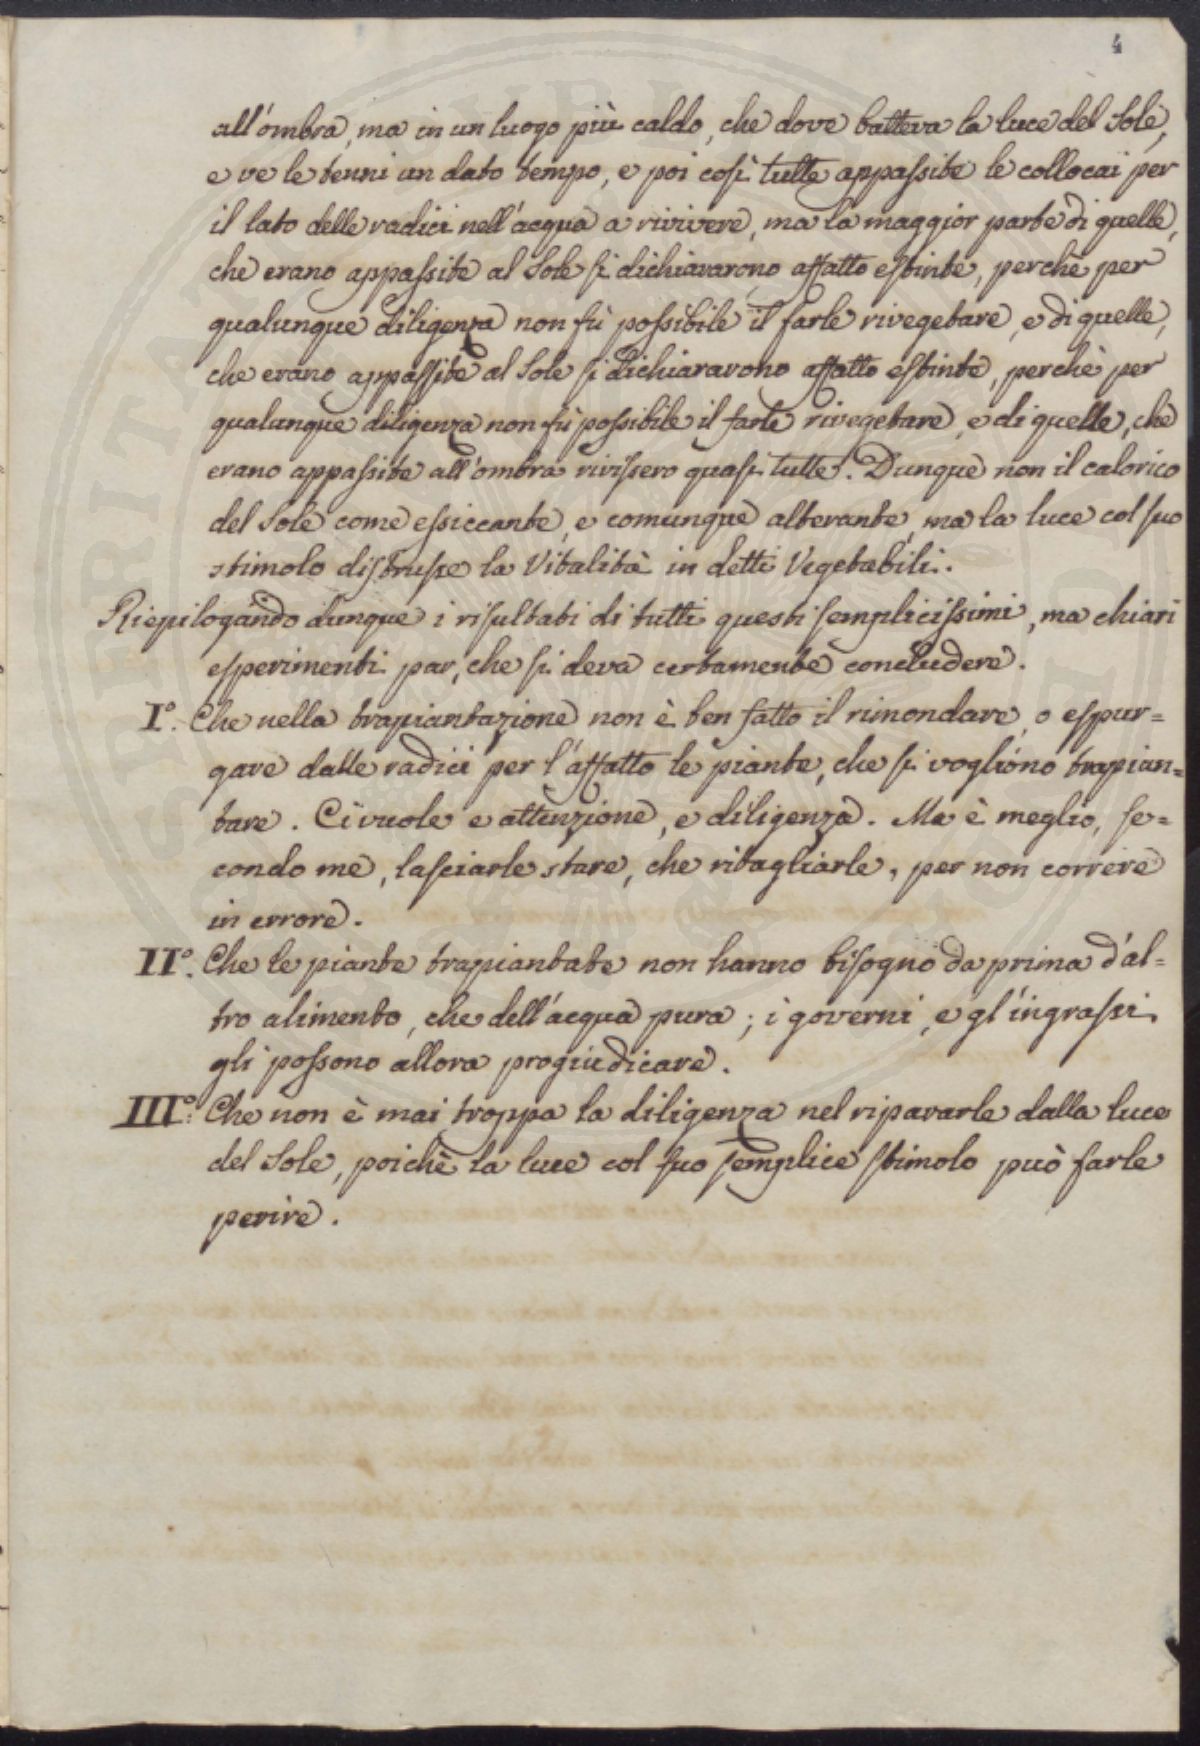 4
all'ombra, ma in un luogo più caldo, che dove batteva la luce del Sole,
e ve le tenni un dato tempo, e poi così tutte appassite le collocai per
il lato delle radici nell'acqua a rivivere, ma la maggior parte di quelle,
che erano appassite al Sole si dichiavarono affatto estinte, perchè per
qualunque diligenza non fù possibile il farle rivegetare, e di quelle,
che erano appassite al Sole si dichiaravono affatto estinte, perchè per
qualunque diligenza non fù possibile il farle rivegetare, e di quelle, che
erano appassite all'ombra rivissero quasi tutte. Dunque non il calorico
del Sole come essiccante, e comunque alterante, ma la luce col suo
stimolo distrusse la Vitalità in detti Vegetabili.
Riepilogando dunque i risultati di tutti questi semplicissimi, ma chiari
esperimenti par, che si deva certamente concludere.
I°. Che nella trapiantazione non è ben fatto il rimondare, o espur=
gare dalle radici per l'affatto le piante, che si vogliono trapian=
tare. Ci vuole e attenzione, e diligenza. Ma è meglio, se=
condo me, lasciarle stare, che ritagliarle, per non correre
in errore.
II°. Che le piante trapiantate non hanno bisogno da prima d'al=
tro alimento, che dell'acqua pura; i governi, e gl'ingrassi
gli possono allora progiudicare.
III°: Che non è mai troppa la diligenza nel ripararle dalla luce
del Sole, poichè la luce col suo semplice stimolo può farle
perire.